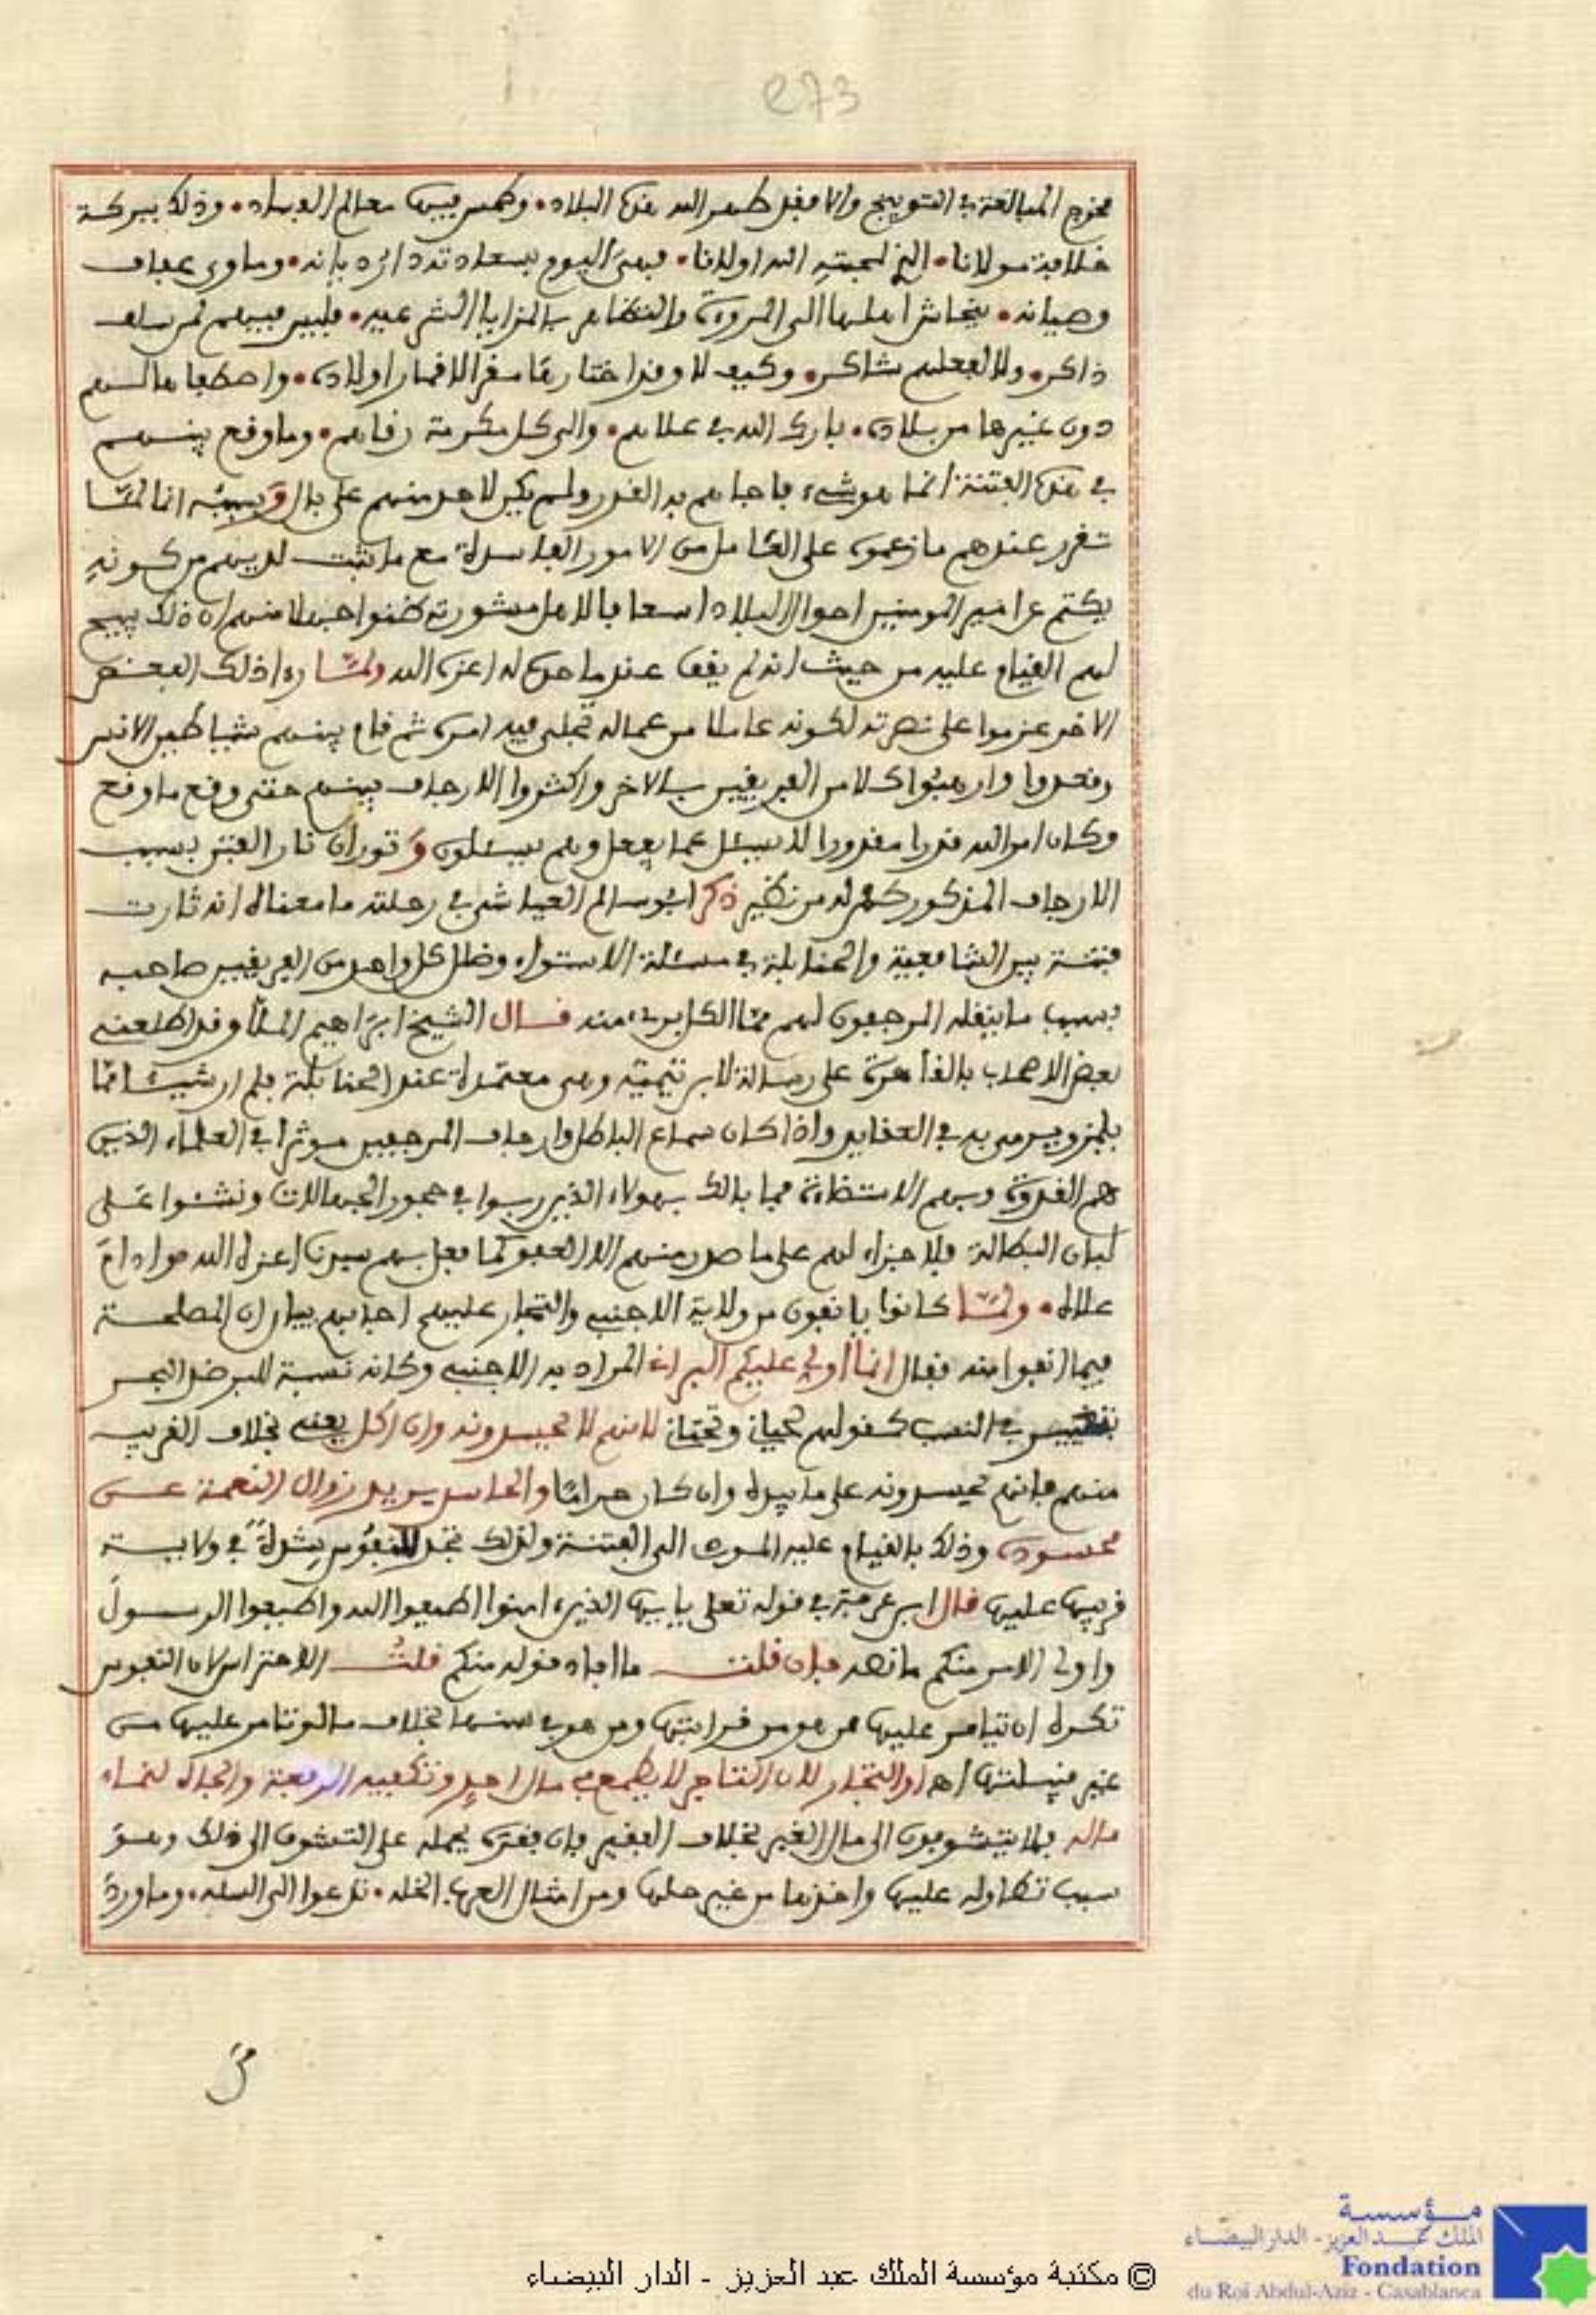 273
مخرج المبالغة في التوبيخ والا فقد طهر الله هذه البلاد. وطمس فيها معالم الفساد. وذلك ببركة
خلافة مولانا. الذي لمحبته الله اولانا. فهي اليوم بسعادته دار ديانه. وماوى عفاف
وصيانه. يتحاشى اهلها الى المروءة والتظاهر بالمزايا الشرعيه. فليس فيهم لمن سلف
ذاكر. ولا لفعلهم شاكر. وكيف لا وقد اختارها مقرا لاقمار اولاده. واصطفاها لسهم
دون غيرها من بلاده. بارك الله في علاهم. والى كل مكرمة رقاهم. وما وقع بينهم
في هذه الفتنة انما هو شيء فاجاهم به القدر ولم يكن لاحد منهم على بال وسببه انه لمّا
تقرر عندهم ما زعموه على العامل من الامور الفاسدة مع ما ثبت لديهم من كونه
يكتم عن امير المومنين احوال البلاد اسعافا لاهل مشورته ظنوا جهلا منهم ان ذلك يبيح
لهم القيام عليه من حيث انه لم يقف عند ما حده له اعزه الله ولمّا راى ذلك البعض
الاخر عزموا على نصرته لكونه عاملا من عماله تجلى فيه امره ثم قام بينهم شياطين الانس
وقعدوا وارهبوا كلا من الفريقين بالاخر واكثروا الارجاف بينهم حتى وقع ما وقع
وكان امر الله قدرا مقدورا لا يسئل عما يفعل وهم يسئلون وثوران نار الفتن بسبب
الارجاف المذكور كم له من نظير ذكر ابو سالم العياشي في رحلته ما معناه انه ثارت
فتنة بين الشافعية والحنابلة في مسئلة الاستواء وضلل كل واحد من الفريقين صاحبه
بسبب ما ينقله المرجفون لهم ممّا الكل بريء منه قال الشيخ ابراهيم الملّا وقد اطلعني
بعض الاصحاب بالقاهرة على رسالة لابن تيميّة وهي معتمدة عند الحنابلة فلم ار شيئا ممّا
يلمزويرمى به في العقايد واذا كان سماع الباطل وارجاف المرجفين موثرا في العلماء الذين
هم القدوة وبهم الاستضاءة فما بالك بهولاء الذين ربوا في حجور الجهالات ونشئوا على
لبان البطالة فلا جزاء لهم على ما صدر منهم الا العفو كما فعل بهم سيدنا اعزه الله وادام
علاه. ولمّا كانوا يانفون من ولاية الاجنبي والتجار عليهم اجابهم ببيان ان المصلحة
فيما انفوا منه فقال انما اولي عليكم البراني المراد به الاجنبي وكانه نسبة للبر ضد البحر
بتغيير في النسب كقولهم لحياني وتحتاني لانهم لا يحسدونه وان اكل يعني بخلاف القريب
منهم فانهم يحسدونه على ما بيده وان كان حراما والحاسد يريد زوال النعمة عن
محسوده وذلك بالقيام عليه المودي الى الفتنة ولذلك تجد للنفوس شدة في ولاية
قريبها عليها قال ابن عرفة في قوله تعلى يايها الذين ءامنوا اطيعوا الله واطيعوا الرسول
واولي الامر منكم ما نصه فان قلت ما افاد قوله منكم قلت الاحتراس لان النفوس
تكره ان يتامر عليها من هو من قرابتها ومن هو في سنها بخلاف ما لو تامر عليها من
غير قبيلتها اهـ او التجار لان التاجر لا يطمع في مال احد وتكفيه الرفعة والجاه لنماء
ماله فلا يتشوفون الى مال الغير بخلاف الفقير فان فقره يحمله على التشوف الى ذلك وهو
سبب تطاوله عليها واخذها من غير حلها ومن امثال العرب الخله. تدعوا الى السله. وما ورد
© مكتبة مؤسسة الملك عبد العزيز - الدار البيضاء
مؤسسة
الملك عبد العزيز - الدار البيضاء
Fondation
du Roi Abdul-Aziz - Casablanca